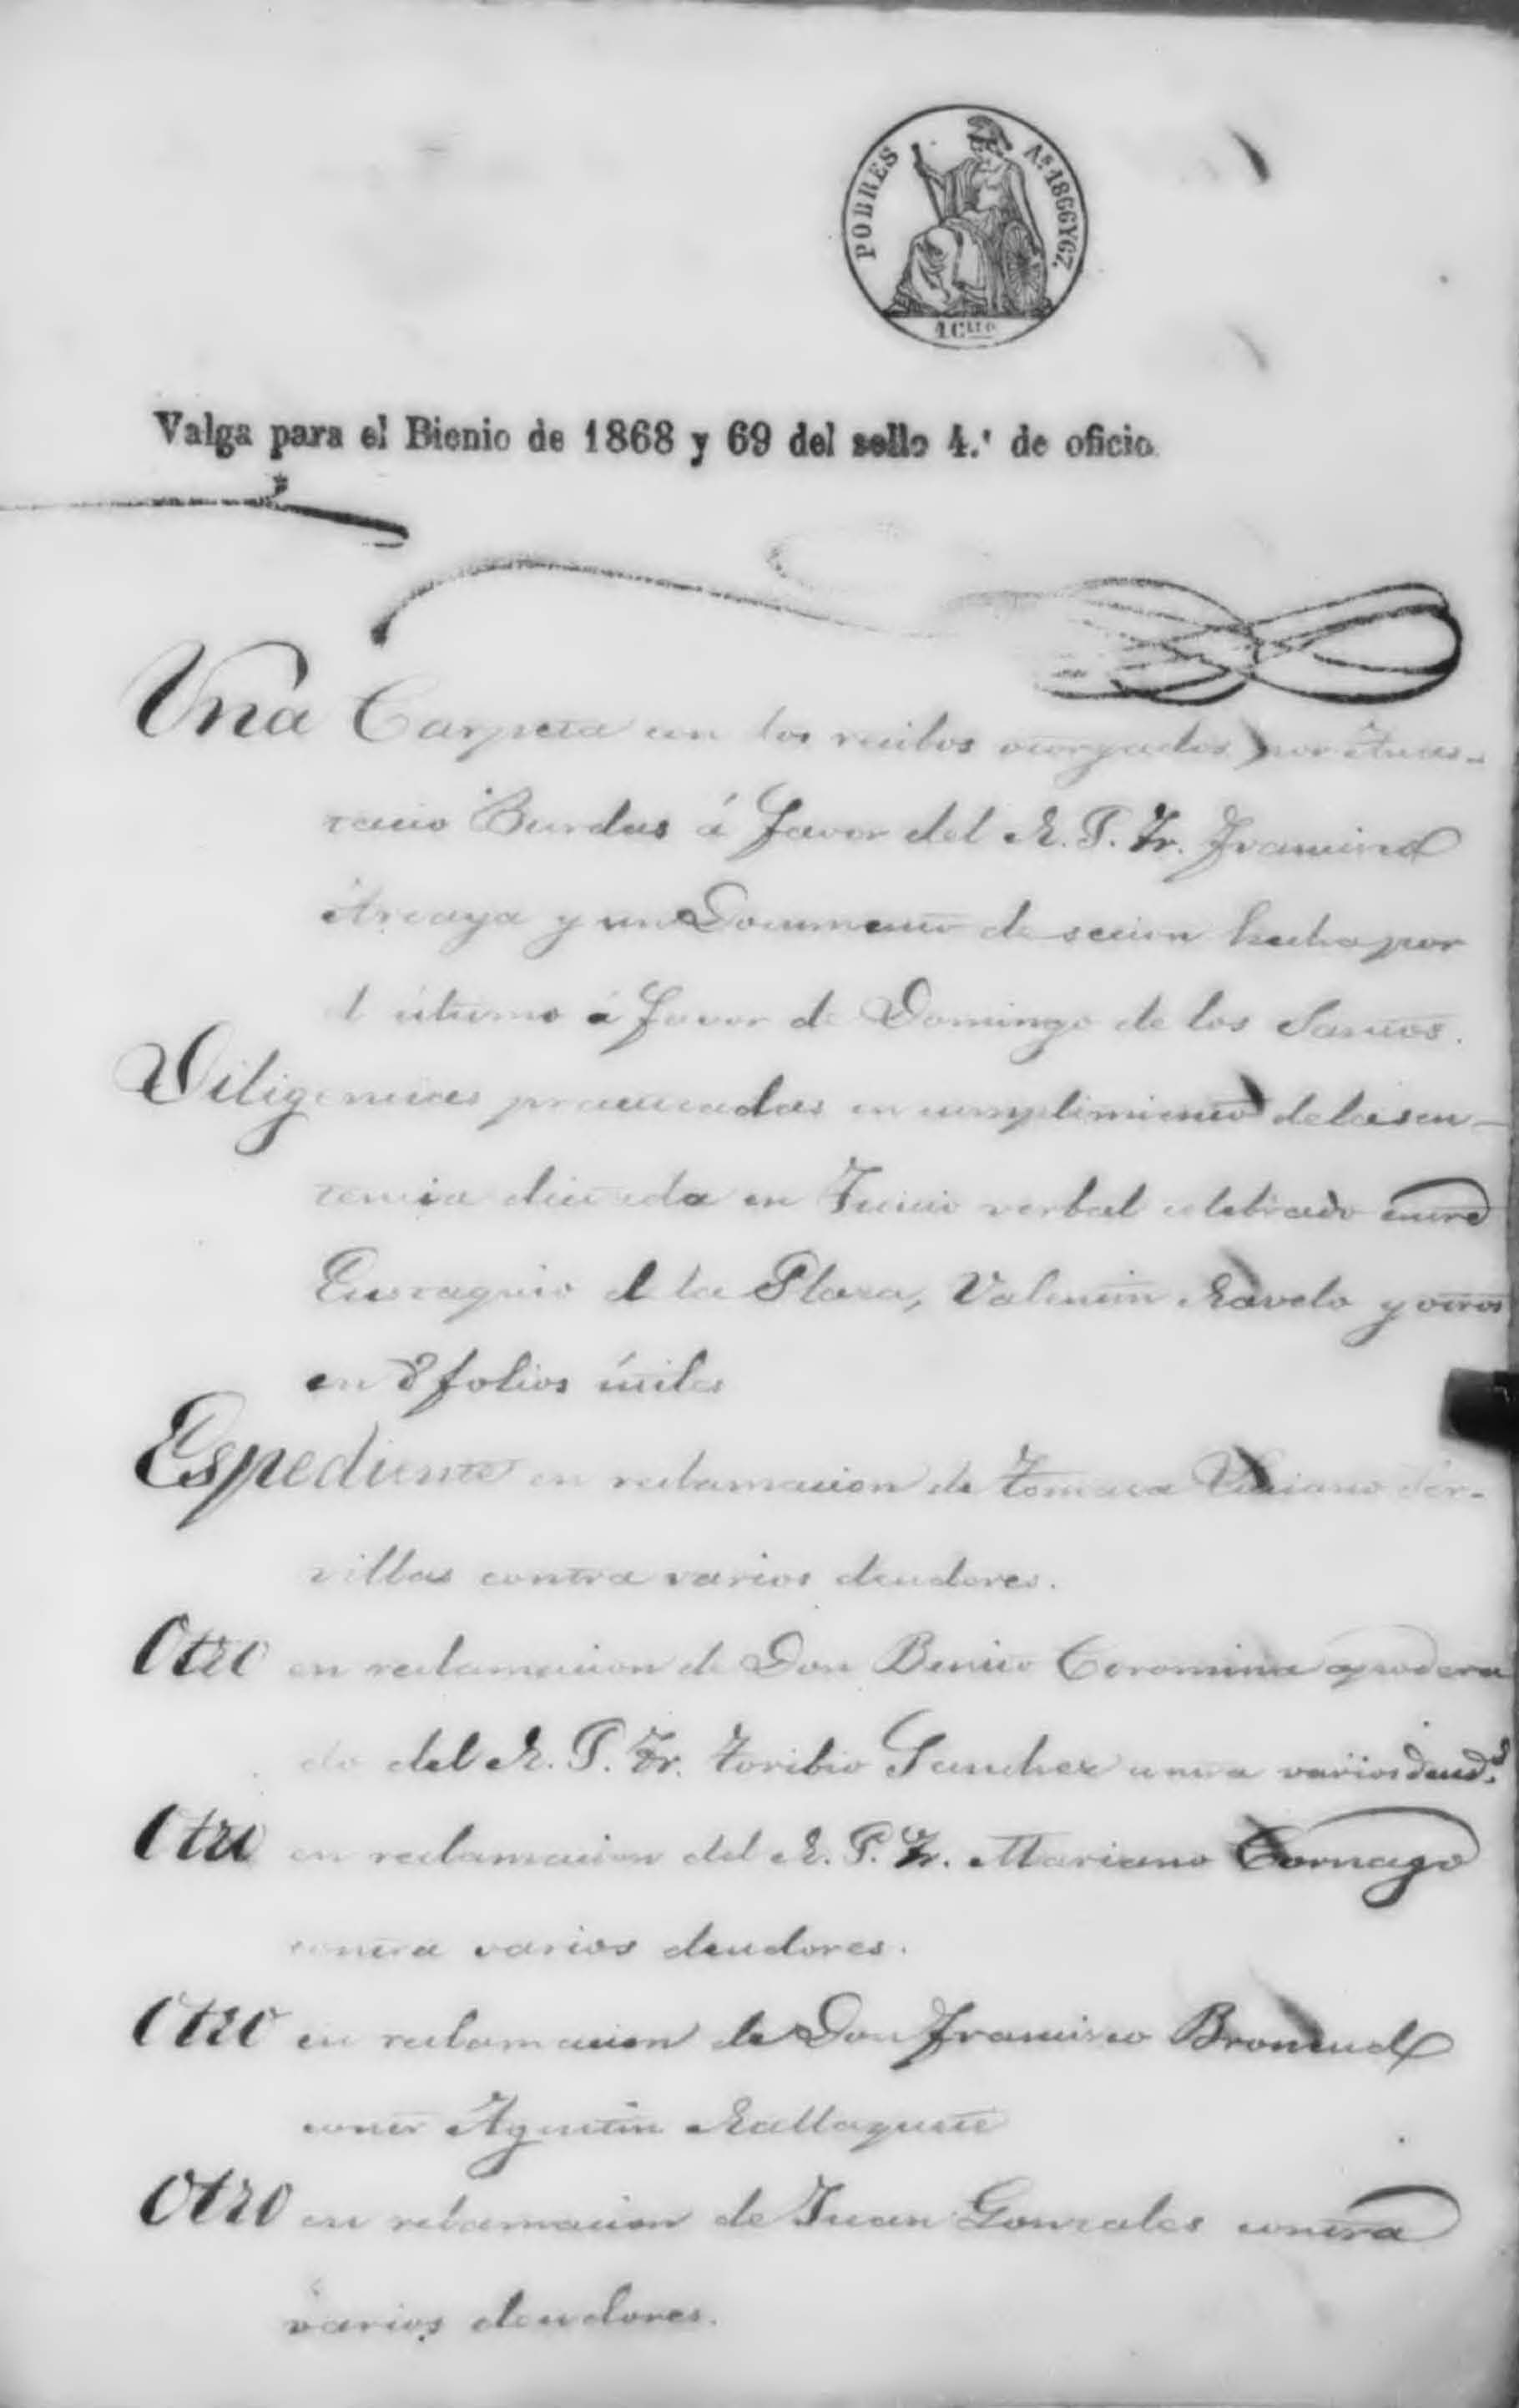 POBRES Aˢ 1866 Y 67.
4 Cᵘᵗᵒ
Valga para el Bienio de 1868 y 69 del sello 4.' de oficio.
Una Carpeta con los recibos otorgados por Anas-
tacio Burdas á favor del R. P. Fr. Francisco
Arcaya y un Documento de secion hecha por
el ultimo á favor de Domingo de los Santos.
Diligencias practicadas en cumplimiento de la sen-
tencia dictada en Juicio verbal celebrado entre
Eustaquio de la Plaza, Valentin Ravelo y otros
en 8 folios útiles
Espediente en reclamacion de Tomasa
villas contra varios deudores.
Otro en reclamacion de Don Benito Coromina apodera
do del R. P. Fr. Toribio Sanchez contra varios deud.ˢ
Otro en reclamacion del R. P. Fr. Mariano Cornago
contra varios deudores.
Otro en reclamacion de Don Francisco
contr Agustin
Otro en reclamacion de Juan Gonzales contra
varios deudores.